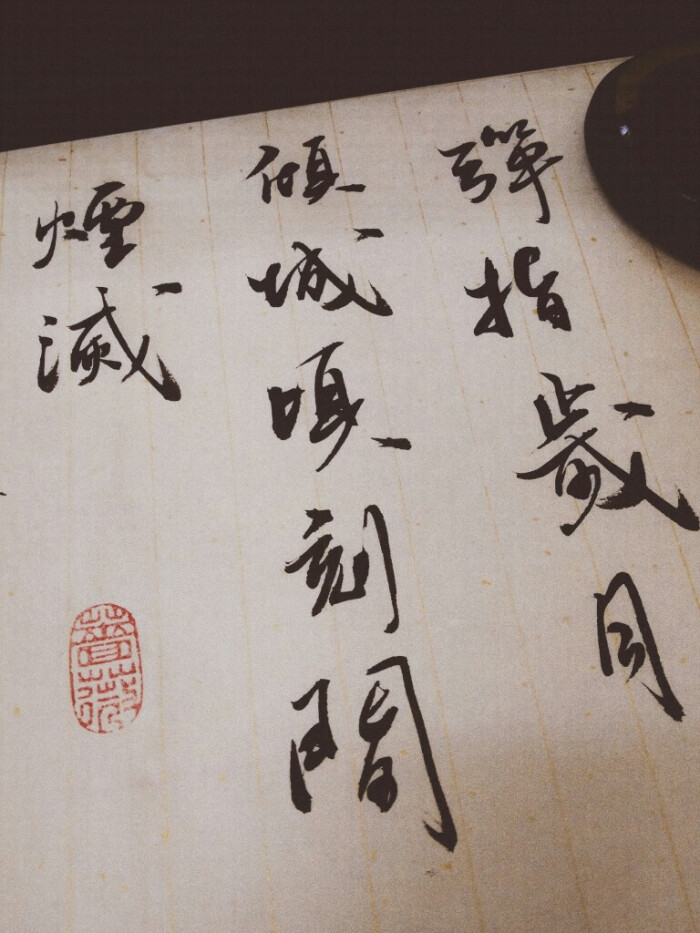 彈指歲月
傾城頃刻間
煙滅
薔薇